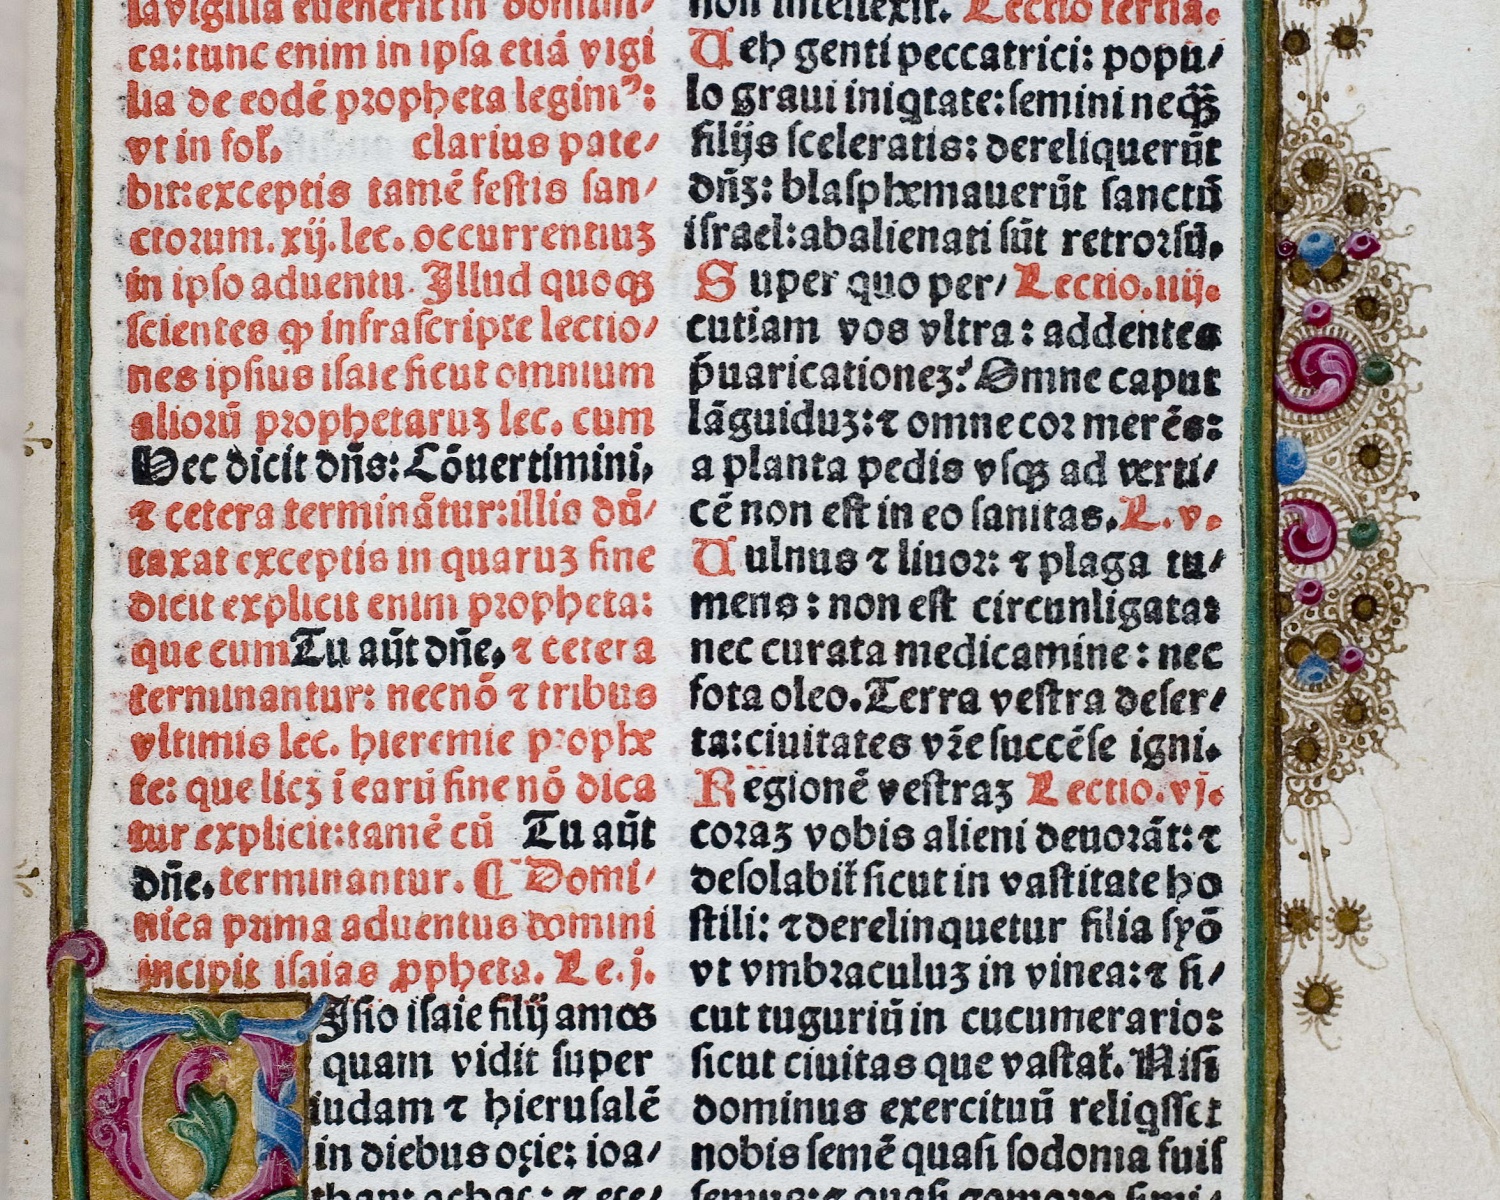 la vigilia euenerit in domini/
ca: tunc enim in ipsa etiā vigi
lia de eodē propheta legimꝰ:
vt in fol. clarius pate/
bit: exceptis tamē festis san/
ctorum. xij. lec. occurrentiuʒ
in ipso aduentu. Illud quoqꝫ
scientes ꝙ infrascripte lectio/
nes ipsius isaie sicut omnium
aliorū prophetaruʒ lec. cum
Hec dicit dn̄s: Cōuertimini,
⁊ cetera terminātur: illis dū/
taxat exceptis in quaruʒ fine
dicit explicit enim propheta:
que cum Tu aūt dn̄e, ⁊ cetera
terminantur: necnō ⁊ tribus
vltimis lec. hieremie prophe
te: que licʒ ī earū fine nō dica
tur explicit: tamē cū Tu aūt
dn̄e. terminantur. ¶ Domi/
nica prima aduentus domini
incipit isaias ꝓpheta. Le. j.
VIsio isaie filij amos
quam vidit super
iudam ⁊ hierusalē
in diebus oçie: ioa/
than: achac: ⁊ eçe/
non intellexit. Lectio tertia.
Ueh genti peccatrici: popu/
lo graui iniqtate: semini neqꝫ̄
filijs sceleratis: dereliquerūt
dn̄ʒ: blasphemauerūt sanctū
israel: abalienati sūt retrorsū.
Super quo per/ Lectio. iiij.
cutiam vos vltra: addentes
p̄uaricationeʒ: Omne caput
lāguiduʒ: ⁊ omne cor merēs:
a planta pedis vsqꝫ ad verti/
cē non est in eo sanitas. L. v.
Uulnus ⁊ liuor: ⁊ plaga tu/
mens: non est circunligata:
nec curata medicamine: nec
fota oleo. Terra vestra deser/
ta: ciuitates vr̄e succēse igni.
Regionē vestraʒ Lectio. vj.
coraʒ vobis alieni deuorāt: ⁊
desolabit̄ sicut in vastitate ho
stili: ⁊ derelinquetur filia syō
vt vmbraculuʒ in vinea: ⁊ si/
cut tuguriū in cucumerario:
sicut ciuitas que vastat̄. Nisi
dominus exercituū reliqsset
nobis semē quasi sodoma fuis
semus: ⁊ quasi gomorra simi/